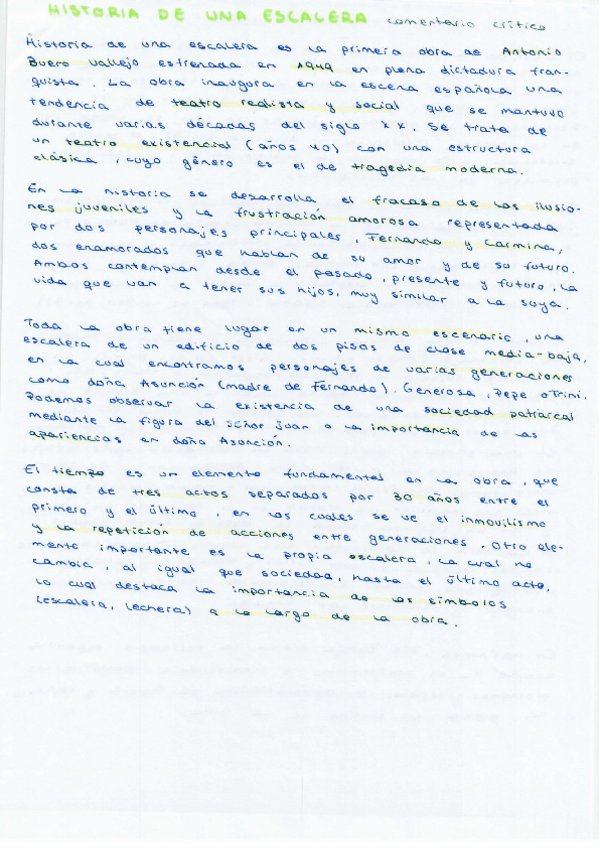 HISTORIA DE UNA ESCALERA comentario crítico
Historia de una escalera es la primera obra de Antonio
Buero Vallejo estrenada en 1949 en plena dictadura fran-
quista. La obra inaugura en la escena española una
tendencia de teatro realista y social que se mantuvo
durante varias décadas del siglo XX. Se trata de
un teatro existencial (años 40) con una estructura
clásica, cuyo género es el de tragedia moderna.
En la historia se desarrolla el fracaso de las ilusio-
nes juveniles y la frustración amorosa representada
por dos personajes principales, Fernando y Carmina,
dos enamorados que hablan de su amor y de su futuro.
Ambos contemplan desde el pasado, presente y futuro, la
vida que van a tener sus hijos, muy similar a la suya.
Toda la obra tiene lugar en un mismo escenario, una
escalera de un edificio de dos pisos de clase media-baja,
en la cual encontramos personajes de varias generaciones
como doña Asunción (madre de Fernando). Generosa, Pepe o Trini.
Podemos observar la existencia de una sociedad patriarcal
mediante la figura del señor Juan o la importancia de las
apariencias en doña Asunción.
El tiempo es un elemento fundamental en la obra, que
consta de tres actos separados por 30 años entre el
primero y el último, en los cuales se ve el inmovilismo
y la repetición de acciones entre generaciones. Otro ele-
mento importante es la propia escalera, la cual no
cambia, al igual que sociedad, hasta el último acto,
lo cual destaca la importancia de los símbolos
(escalera, lechera) a lo largo de la obra.